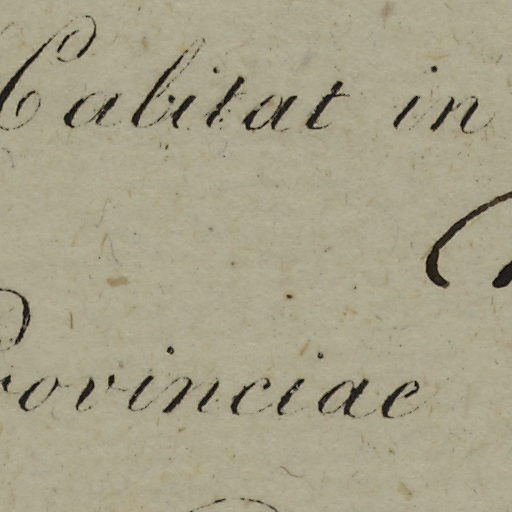 Habitat in
Provinciae